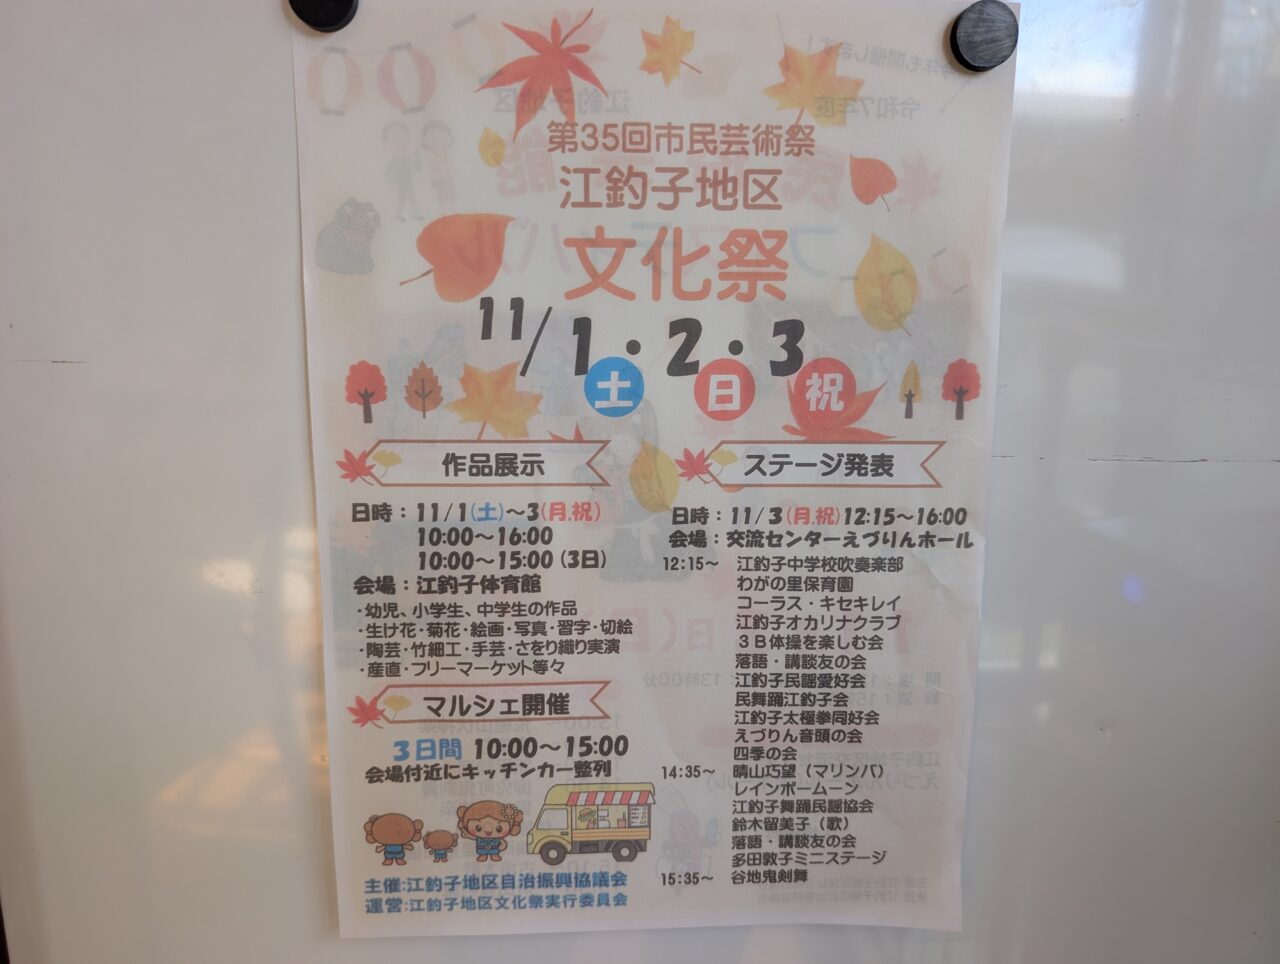 第35回市民芸術祭
江釣子地区
文化祭
11/1・2・3
土 日 祝
作品展示
日時：11/1(土)～3(月.祝)
10:00～16:00
10:00～15:00(3日)
会場：江釣子体育館
・幼児、小学生、中学生の作品
・生け花・菊花・絵画・写真・習字・切絵
・陶芸・竹細工・手芸・さをり織り実演
・産直・フリーマーケット等々
マルシェ開催
3日間 10:00～15:00
会場付近にキッチンカー整列
主催:江釣子地区自治振興協議会
運営:江釣子地区文化祭実行委員会
ステージ発表
日時：11/3(月.祝)12:15～16:00
会場：交流センターえづりんホール
12:15～ 江釣子中学校吹奏楽部
わがの里保育園
コーラス・キセキレイ
江釣子オカリナクラブ
３Ｂ体操を楽しむ会
落語・講談友の会
江釣子民謡愛好会
民舞踊江釣子会
江釣子太極拳同好会
えづりん音頭の会
四季の会
14:35～ 晴山巧望（マリンバ）
レインボームーン
江釣子舞踊民謡協会
鈴木留美子（歌）
落語・講談友の会
多田敦子ミニステージ
15:35～ 谷地鬼剣舞